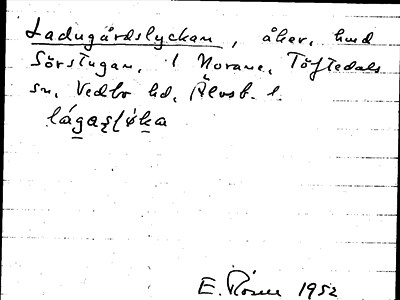 Ladugårdslyckan, åker, hmd
Sörstugan, 1 Norane, Töftedals
sn, Vedbo hd, Älvsb. l.
E. Rosén 1952